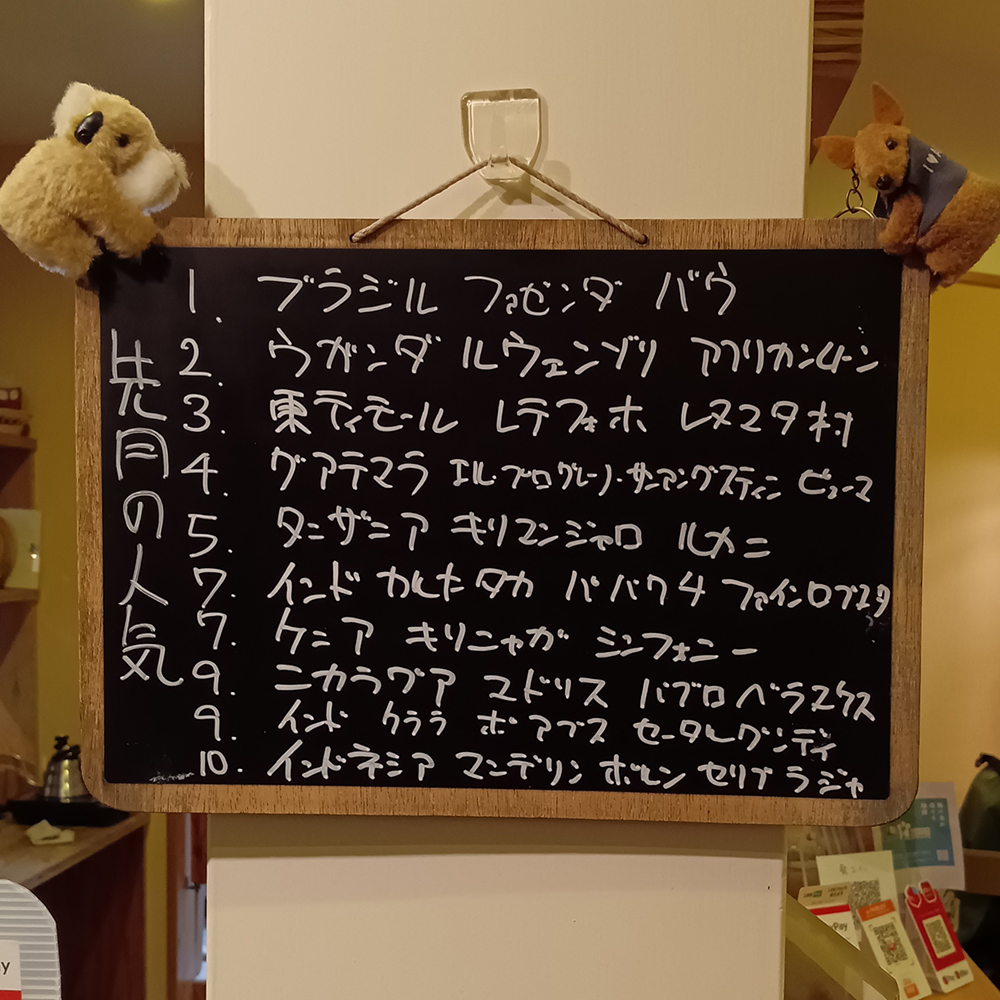 先月の人気
1. ブラジル ファゼンダ バウ
2. ウガンダ ルウェンゾリ アフリカンムーン
3. 東ティモール レテフォホ レヌスタ村
4. グアテマラ エル・プログレーソ・サンアングスティン ピューマ
5. タンザニア キリマンジャロ ルカニ
7. インド カルナタカ パパクチ ファインロブスタ
7. ケニア キリニャガ シンフォニー
9. ニカラグア マドリス パブロ ベラスケス
9. インド ケララ ポアブス セータルグンディ
10. インドネシア マンデリン ポルン セリブ ラジャ
I♥
Pay